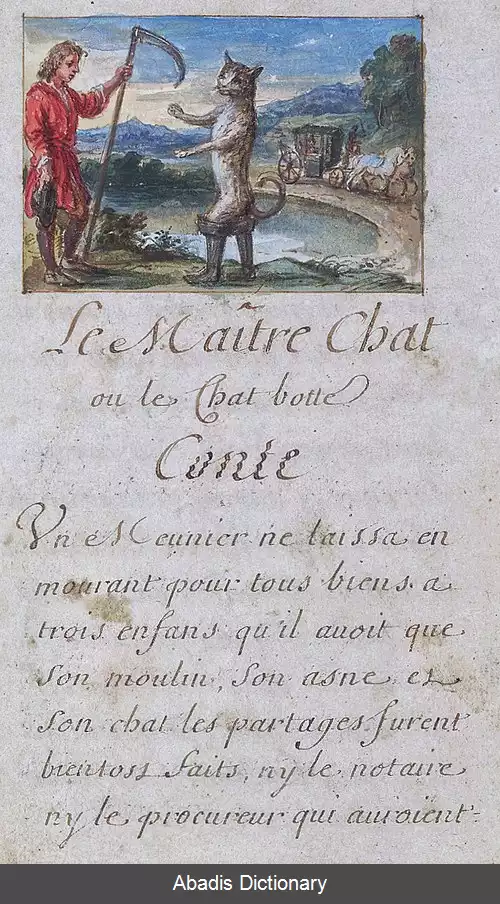 Le Maître Chat
ou le Chat botté
Conte
Un Meunier ne laissa en
mourant pour tous biens a
trois enfans qu'il avoit que
son moulin, son asne et
son chat les partages furent
bientost faits, ny le notaire
ny le procureur qui auroient-
Abadis Dictionary